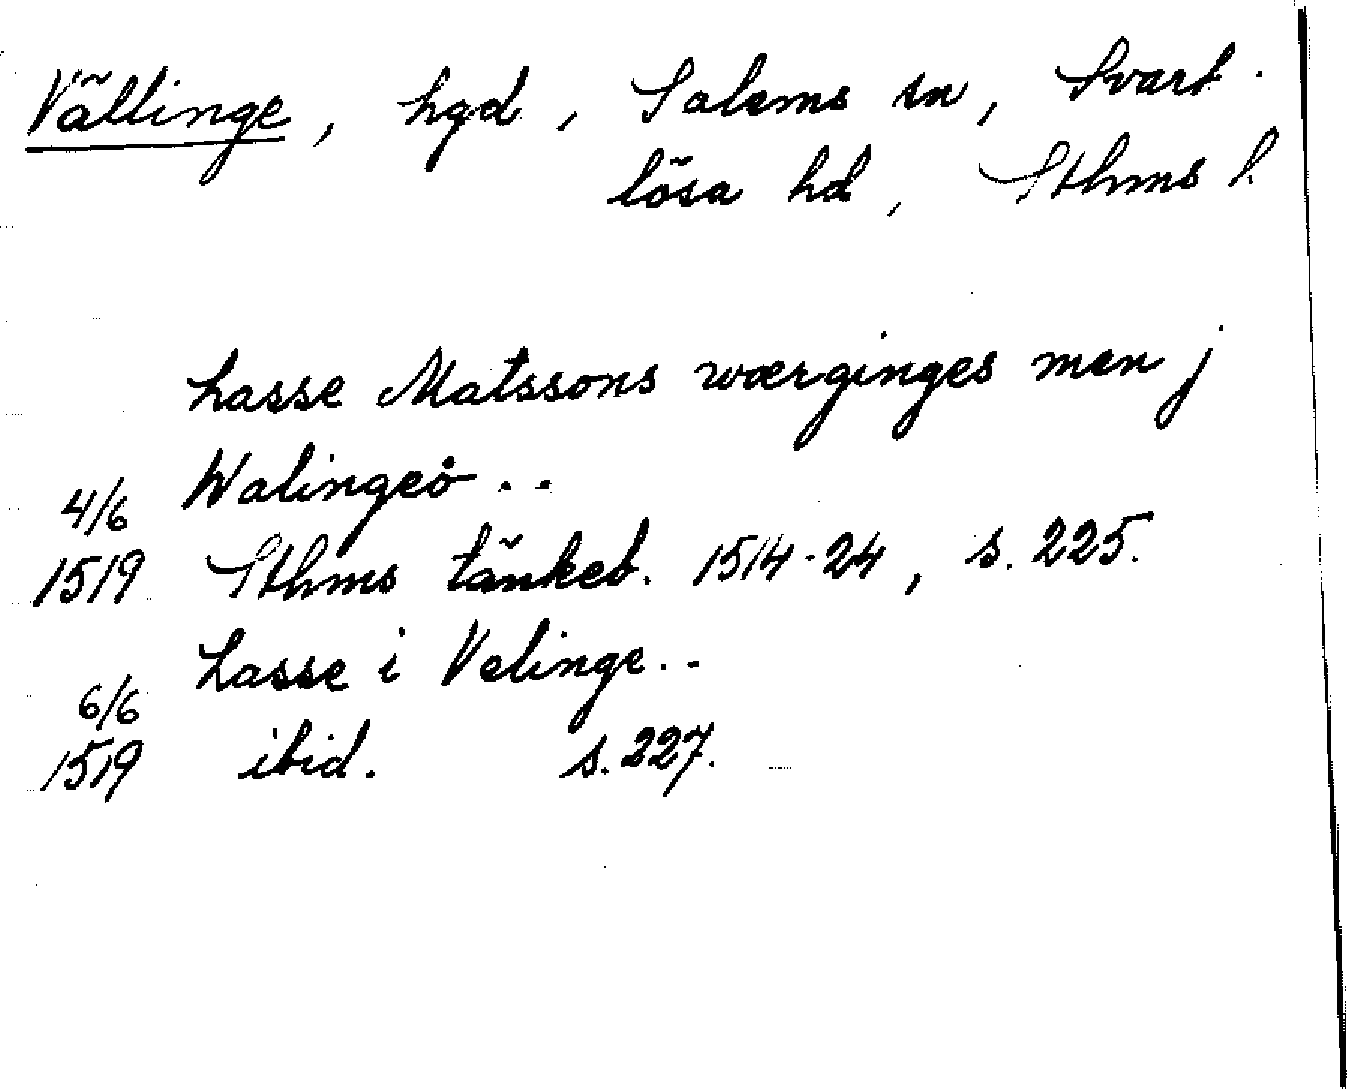 Vällinge, hgd, Salems sn, Svart-
lösa hd, Sthms l.
Lasse Matssons wærginges men j
4/6 Walingeö..
1519 Sthms tänkeb. 1514-24, s. 225.
Lasse i Velinge..
6/6
1519 ibid. s. 227.